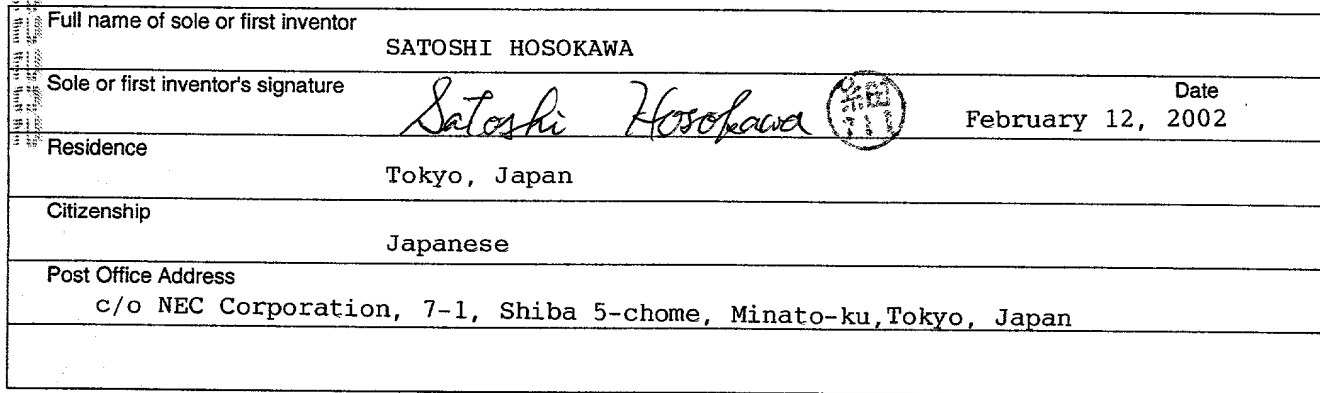 Full name of sole or first inventor
SATOSHI HOSOKAWA
Sole or first inventor's signature
Satoshi Hosokawa 細川
Date
February 12, 2002
Residence
Tokyo, Japan
Citizenship
Japanese
Post Office Address
c/o NEC Corporation, 7-1, Shiba 5-chome, Minato-ku,Tokyo, Japan